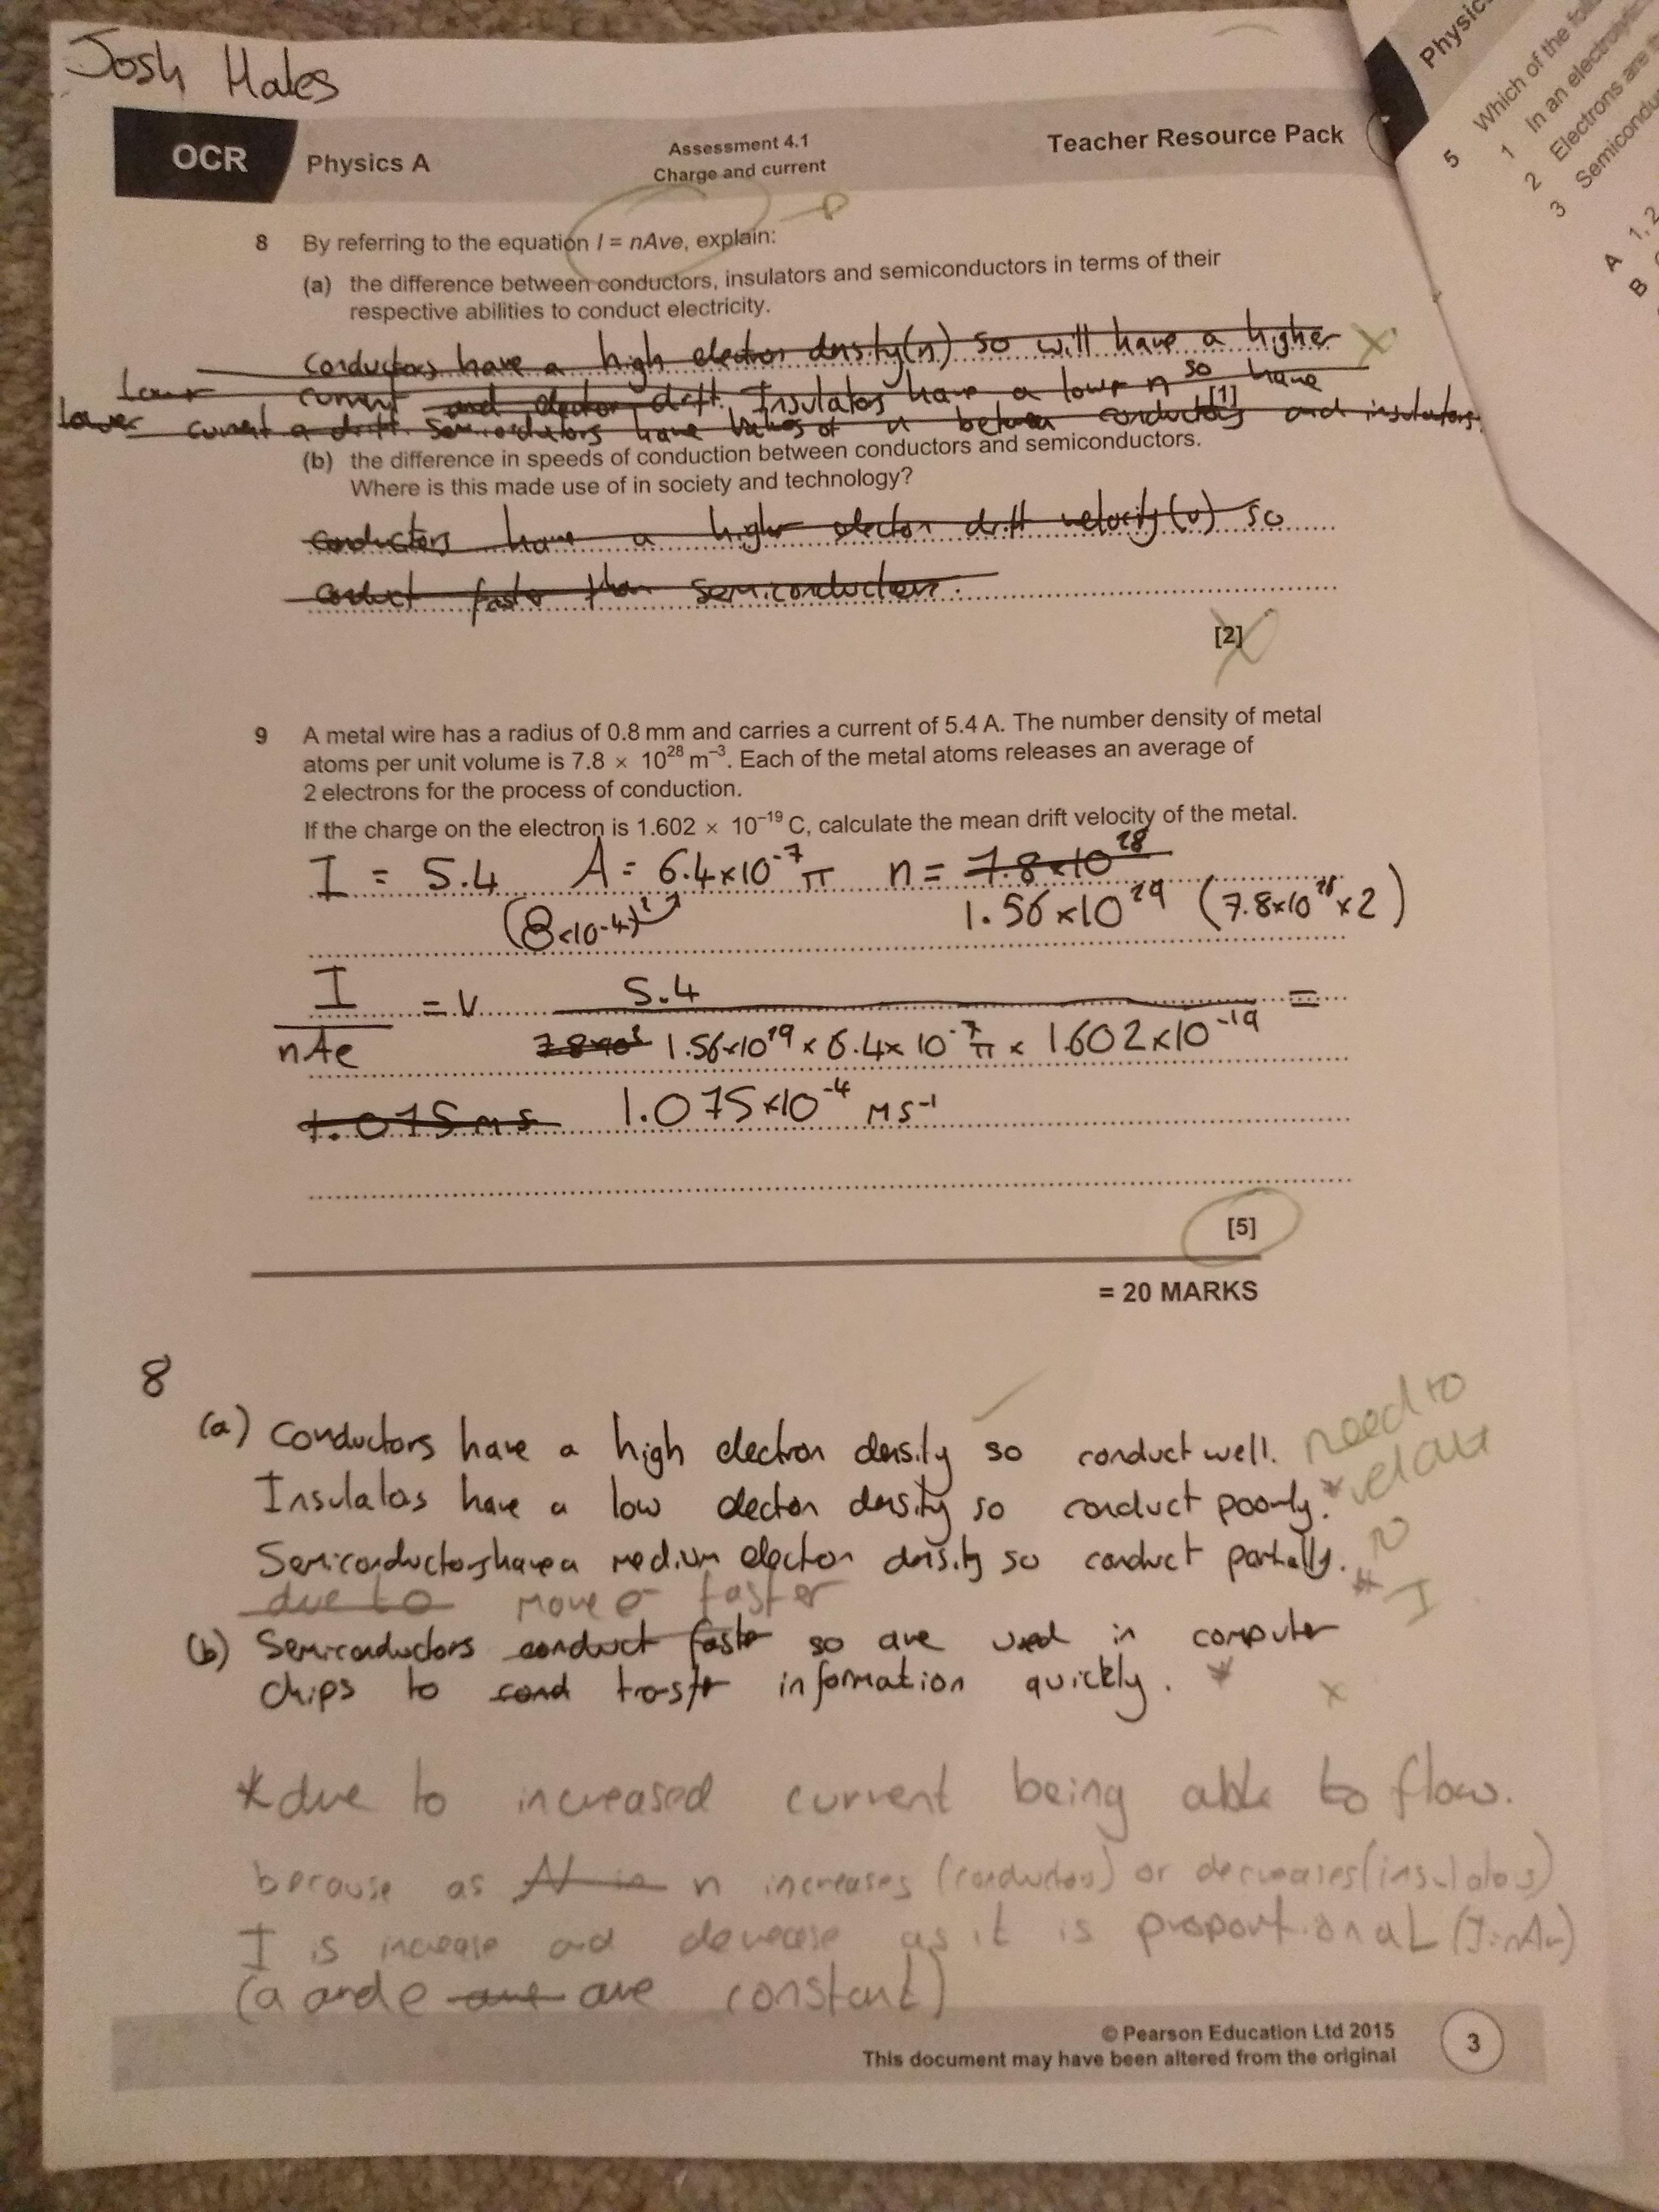 Josh Hales
OCR Physics A Assessment 4.1 Charge and current Teacher Resource Pack
8 By referring to the equation I = nAve, explain:
(a) the difference between conductors, insulators and semiconductors in terms of their
respective abilities to conduct electricity.
conductors have a high electron density(n) so will have a higher
current and electron drift. Insulators have a lower n so have
[1]
lower current a drift. Semiconductors have values of n between conductors and insulators.
(b) the difference in speeds of conduction between conductors and semiconductors.
Where is this made use of in society and technology?
conductors have a higher electron drift velocity(v) so
conduct faster than semiconductors.
[2]
9 A metal wire has a radius of 0.8 mm and carries a current of 5.4 A. The number density of metal
atoms per unit volume is 7.8 × 10²⁸ m⁻³. Each of the metal atoms releases an average of
2 electrons for the process of conduction.
If the charge on the electron is 1.602 × 10⁻¹⁹ C, calculate the mean drift velocity of the metal.
I = 5.4 A = 6.4×10⁻⁷π n = 7.8×10²⁸
(8×10⁻⁴)² 1.56×10²⁹ (7.8×10²⁸×2)
I = v 5.4 =
nAe 1.56×10²⁹ × 6.4×10⁻⁷π × 1.602×10⁻¹⁹
1.075ms 1.075×10⁻⁴ ms⁻¹
[5]
= 20 MARKS
8
(a) Conductors have a high electron density so conduct well. need to
Insulators have a low electron density so conduct poorly.* relate
Semiconductors have a medium electron density so conduct partially. * n
due to move e⁻ faster I
(b) Semiconductors conduct faster so are used in computer
chips to cond transfer information quickly. *
* due to increased current being able to flow.
because as N is n increases (conductors) or decreases (insulators)
I is increase and decrease as it is proportional (I=nAv)
(a and e are are constant)
© Pearson Education Ltd 2015
This document may have been altered from the original
3
Physic
5 Which of the fol
1 In an electrolyt
2 Electrons are
3 Semicondu
A 1, 2
B